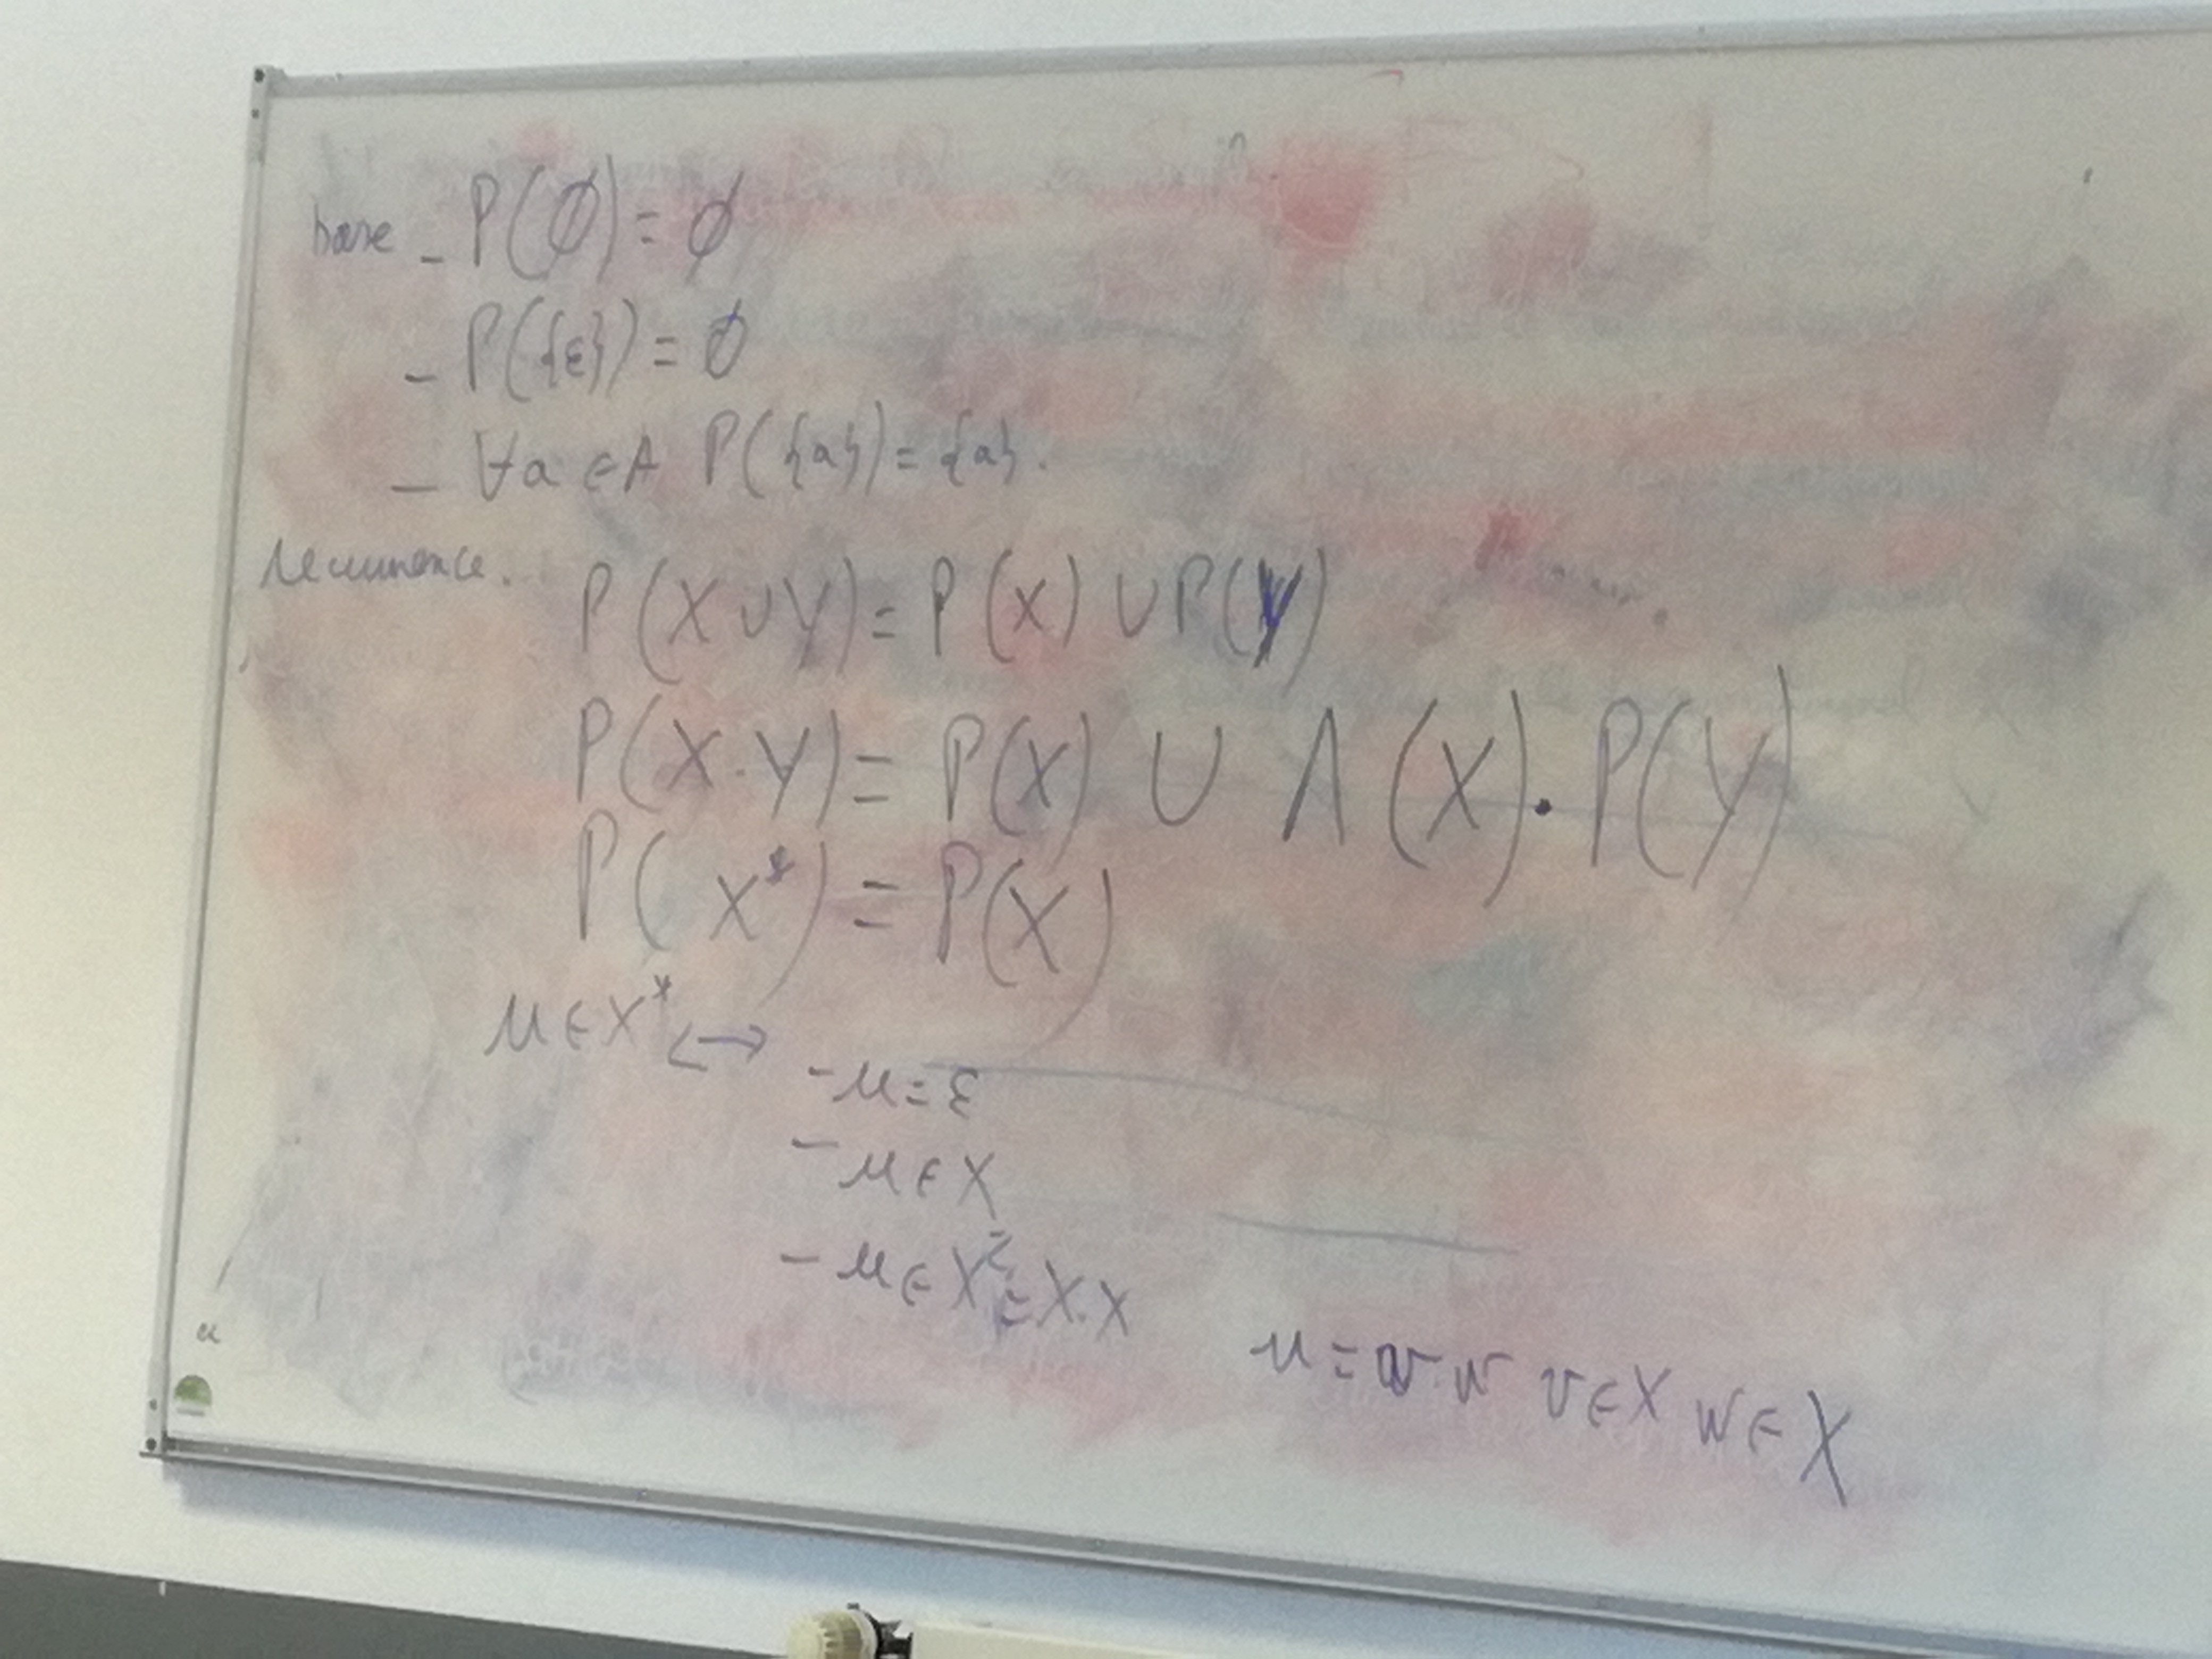 base - P(∅) = ∅
- P({ε}) = ∅
- ∀a ∈ A P({a}) = {a}.
récurrence. P(X ∪ Y) = P(X) ∪ P(Y)
P(X.Y) = P(X) ∪ Λ(X).P(Y)
P(X*) = P(X)
u ∈ X* ↔
- u = ε
- u ∈ X
- u ∈ X² = X.X
u = v.w v ∈ X w ∈ X